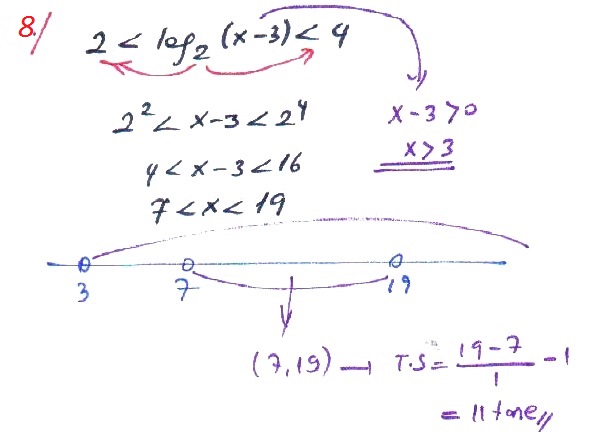 8./ 2 < log₂ (x-3) < 4
2² < x-3 < 2⁴
x-3>0
4 < x-3 < 16
x>3
7 < x < 19
3 7 19
(7,19) → T.S = (19-7)/1 - 1
= 11 tane //